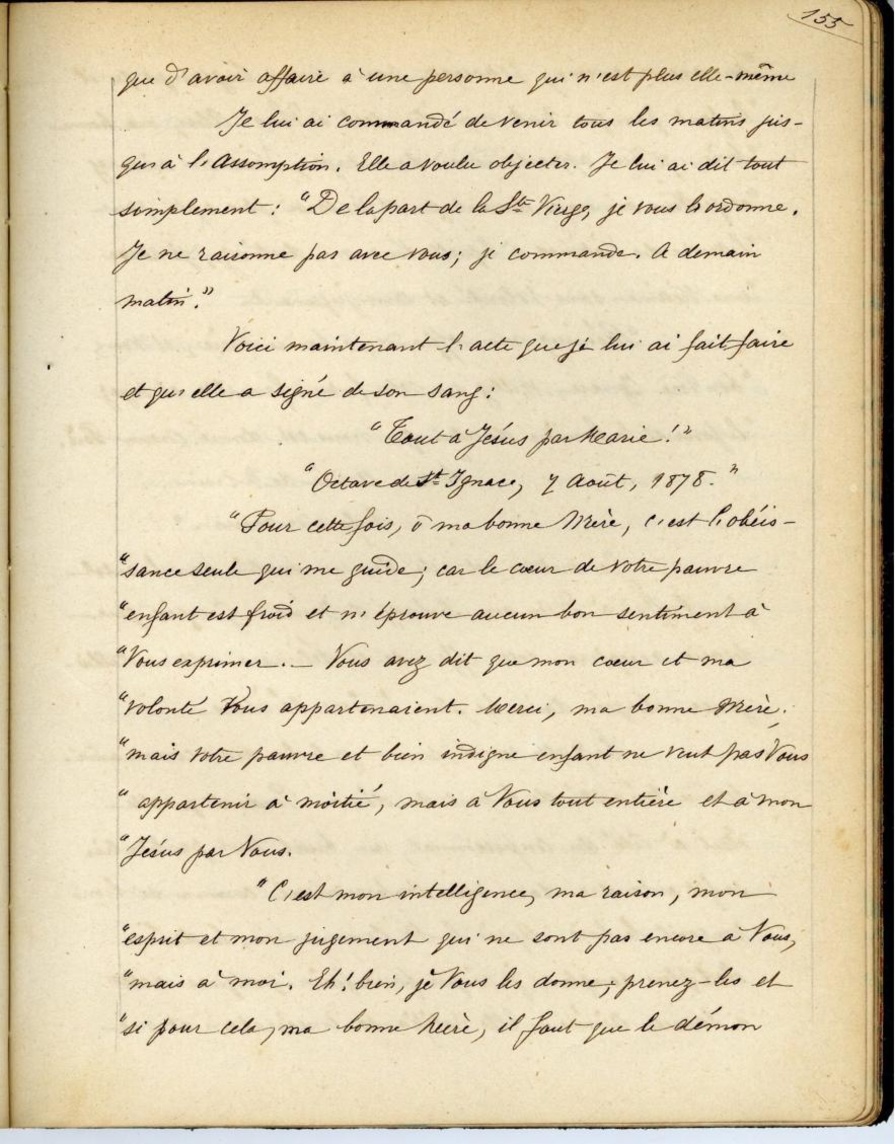 155
que d'avoir affaire à une personne qui n'est plus elle-même
Je lui ai commandé de venir tous les matins jus-
qu'à l'Assomption. Elle a voulu objecter. Je lui ai dit tout
simplement : "De la part de la Ste Vierge, je vous l'ordonne.
Je ne raisonne pas avec vous; je commande. A demain
matin."
Voici maintenant l'acte que je lui ai fait faire
et qu'elle a signé de son sang :
"Tout à Jésus par Marie !"
"Octave de St Ignace, 7 Août, 1878."
"Pour cette fois, ô ma bonne Mère, c'est l'obéis-
"sance seule qui me guide; car le cœur de votre pauvre
"enfant est froid et n'éprouve aucun bon sentiment à
"Vous exprimer. _ Vous avez dit que mon cœur et ma
"volonté Vous appartenaient. Merci, ma bonne Mère;
"mais votre pauvre et bien indigne enfant ne veut pas Vous
"appartenir à moitié, mais à Vous tout entière et à mon
"Jésus par Vous.
"C'est mon intelligence, ma raison, mon
"esprit et mon jugement qui ne sont pas encore à Vous,
"mais à moi. Eh! bien, je Vous les donne; prenez-les et
"si pour cela, ma bonne Mère, il faut que le démon